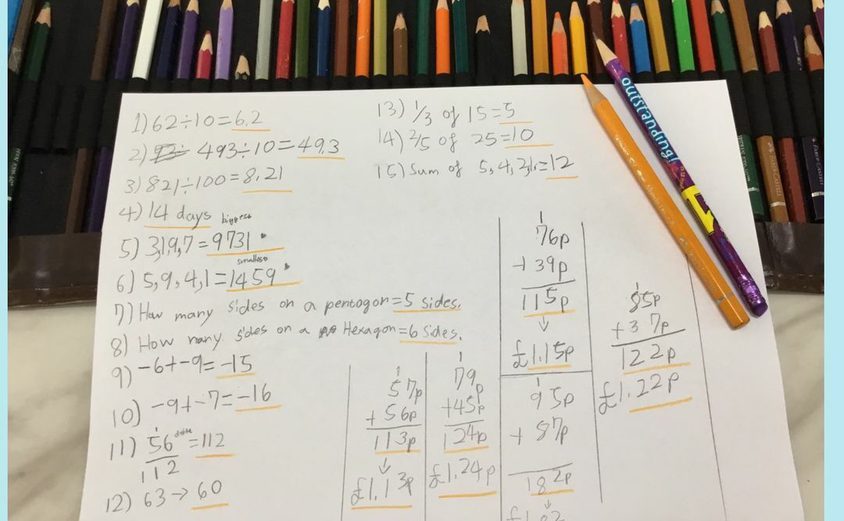 1) 62÷10=6.2
2) 493÷10=49.3
3) 821÷100=8.21
4) 14 days
biggest
5) 3,1,9,7=9731
smallest
6) 5,9,4,1=1459
7) How many sides on a pentagon=5 sides.
8) How many sides on a Hexagon=6 sides.
9) -6+-9=-15
10) -9+-7=-16
11) 56 =112
1
112
12) 63→60
13) 1/3 of 15=5
14) 2/5 of 25=10
15) Sum of 5,4,2,1=12
1
57p
+56p
113p
↓
£1.13p
1
79p
+45p
124p
£1.24p
1
76p
+39p
115p
↓
£1.15p
1
95p
+87p
182p
↓
1
85p
+37p
122p
£1.22p
outstanding!